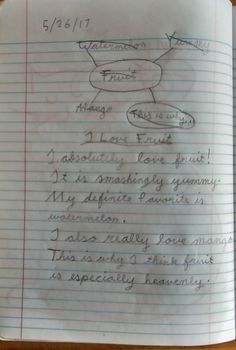 5/26/17
Watermelon Yummy
Fruit
Mango This is why..
I Love Fruit
I absolutely love fruit!
It is smashingly yummy.
My definite favorite is
watermelon.
I also really love mango.
This is why I think fruit
is especially heavenly.